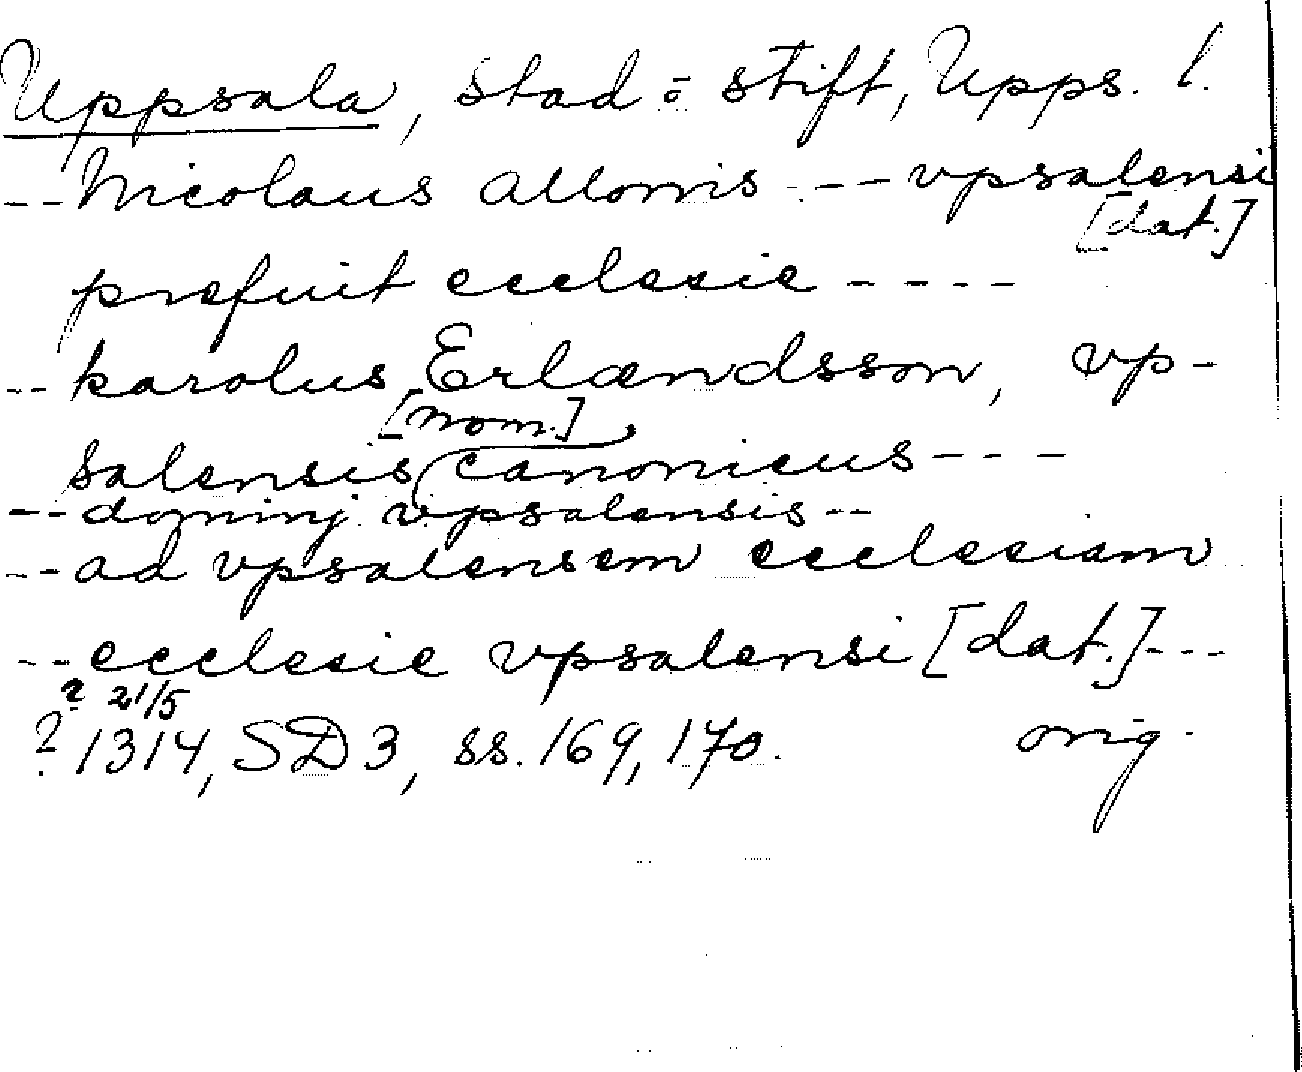 Uppsala, stad o stift, Upps. l.
--Nicolaus allonis --- vpsalensi
[dat.]
prefuit ecclesie ----
--karolus Erlændsson, vp-
[nom.]
salensis canonicus---
--dominj vpsalensis--
--ad vpsalensem ecclesiam
--ecclesie vpsalensi [dat.]---
? 21/5
? 1314, SD 3, ss. 169, 170. orig.